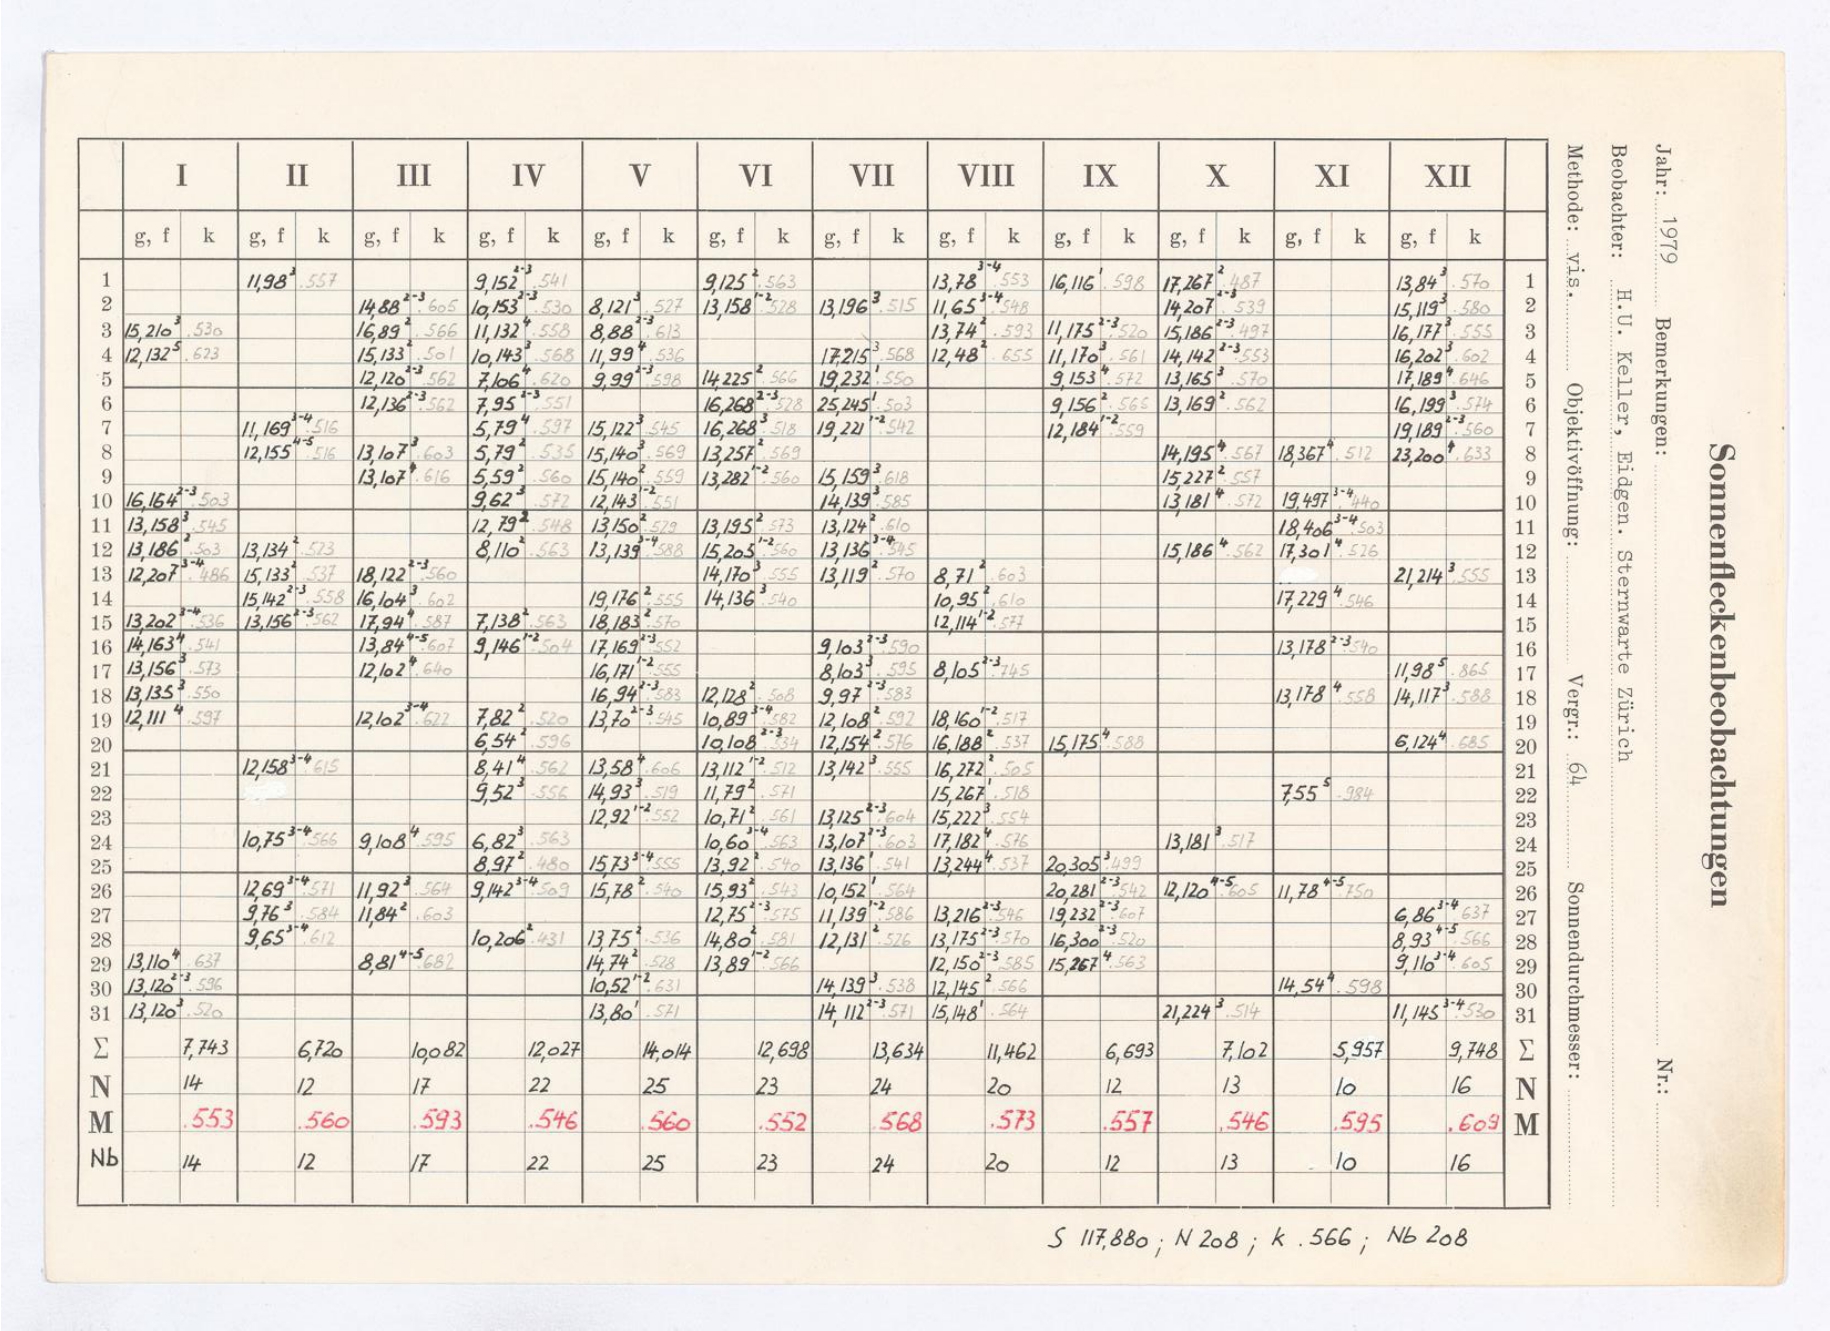 I II III IV V VI VII VIII IX X XI XII
g, f k g, f k g, f k g, f k g, f k g, f k g, f k g, f k g, f k g, f k g, f k g, f k
1 11,98³ .557 9,152²⁻³ .541 9,125² .563 13,78³⁻⁴ .553 16,116¹ .598 17,267² .487 13,84³ .570 1
2 14,88²⁻³ .605 10,153²⁻³ .530 8,121³ .527 13,158¹⁻² .528 13,196³ .515 11,65³⁻⁴ .548 14,207²⁻³ .539 15,119³ .580 2
3 15,210³ .530 16,89² .566 11,132⁴ .558 8,88²⁻³ .613 13,74² .593 11,175²⁻³ .520 15,186²⁻³ .497 16,177³ .555 3
4 12,132⁵ .623 15,133² .501 10,143³ .568 11,99⁴ .536 17,215³ .568 12,48² .655 11,170³ .561 14,142²⁻³ .553 16,202³ .602 4
5 12,120²⁻³ .562 7,106⁴ .620 9,99²⁻³ .598 14,225² .566 19,232¹ .550 9,153⁴ .572 13,165³ .570 17,189⁴ .646 5
6 12,136²⁻³ .562 7,95²⁻³ .551 16,268²⁻³ .528 25,245¹ .503 9,156² .565 13,169² .562 16,199³ .574 6
7 11,169³⁻⁴ .516 5,79⁴ .597 15,122³ .545 16,268³ .518 19,221¹⁻² .542 12,184¹⁻² .559 19,189²⁻³ .560 7
8 12,155⁴⁻⁵ .516 13,107³ .603 5,79² .535 15,140³ .569 13,257² .569 14,195⁴ .567 18,367⁴ .512 23,200⁴ .633 8
9 13,107⁴ .616 5,59² .560 15,140² .559 13,282¹⁻² .560 15,159³ .618 15,227² .557 9
10 16,164²⁻³ .503 9,62³ .572 12,143¹⁻² .551 14,139³ .585 13,181⁴ .572 19,497³⁻⁴ .440 10
11 13,158³ .545 12,79² .548 13,150² .529 13,195² .573 13,124² .610 18,406³⁻⁴ .503 11
12 13,186² .503 13,134² .523 8,110² .563 13,139³⁻⁴ .588 15,205¹⁻² .560 13,136³⁻⁴ .545 15,186⁴ .562 17,301⁴ .526 12
13 12,207³⁻⁴ .486 15,133² .537 18,122²⁻³ .560 14,170³ .555 13,119² .570 8,71² .603 21,214³ .555 13
14 15,142²⁻³ .558 16,104³ .602 19,176² .555 14,136³ .540 10,95² .610 17,229⁴ .546 14
15 13,202³⁻⁴ .536 13,156²⁻³ .562 17,94⁴ .587 7,138² .563 18,183² .570 12,114¹⁻² .577 15
16 14,163⁴ .541 13,84⁴⁻⁵ .607 9,146¹⁻² .504 17,169²⁻³ .552 9,103²⁻³ .590 13,178²⁻³ .540 16
17 13,156³ .573 12,102⁴ .640 16,171¹⁻² .555 8,103³ .595 8,105²⁻³ .745 11,98⁵ .865 17
18 13,135³ .550 16,94²⁻³ .583 12,128² .508 9,97²⁻³ .583 13,178⁴ .558 14,117³ .588 18
19 12,111⁴ .597 12,102³⁻⁴ .622 7,82² .520 13,70²⁻³ .545 10,89³⁻⁴ .582 12,108² .592 18,160¹⁻² .517 19
20 6,54² .596 10,108²⁻³ .534 12,154² .576 16,188² .537 15,175⁴ .588 6,124⁴ .685 20
21 12,158³⁻⁴ .615 8,41⁴ .562 13,58⁴ .606 13,112¹⁻² .512 13,142³ .555 16,272² .505 21
22 9,52³ .556 14,93³ .519 11,79² .571 15,267¹ .518 7,55⁵ .984 22
23 12,92¹⁻² .552 10,71² .561 13,125²⁻³ .604 15,222³ .554 23
24 10,75³⁻⁴ .566 9,108⁴ .595 6,82³ .563 10,60³⁻⁴ .563 13,107²⁻³ .603 17,182⁴ .576 13,181³ .517 24
25 8,97² .480 15,73³⁻⁴ .555 13,92² .540 13,136¹ .541 13,244⁴ .537 20,305³ .499 25
26 12,69³⁻⁴ .571 11,92³ .564 9,142³⁻⁴ .509 15,78² .540 15,93² .543 10,152¹ .564 20,281²⁻³ .542 12,120⁴⁻⁵ .605 11,78⁴⁻⁵ .750 26
27 9,76³ .584 11,84² .603 12,75²⁻³ .575 11,139¹⁻² .586 13,216²⁻³ .546 19,232²⁻³ .607 6,86³⁻⁴ .637 27
28 9,65³⁻⁴ .612 10,206² .431 13,75² .536 14,80² .581 12,131² .526 13,175²⁻³ .570 16,300²⁻³ .520 8,93⁴⁻⁵ .566 28
29 13,110⁴ .637 8,81⁴⁻⁵ .682 14,74² .528 13,89¹⁻² .566 12,150²⁻³ .585 15,267⁴ .563 9,110³⁻⁴ .605 29
30 13,120²⁻³ .596 10,52¹⁻² .631 14,139³ .538 12,145² .566 14,54⁴ .598 30
31 13,120³ .520 13,80¹ .571 14,112²⁻³ .571 15,148¹ .564 21,224³ .514 11,145³⁻⁴ .530 31
Σ 7,743 6,720 10,082 12,027 14,014 12,698 13,634 11,462 6,693 7,102 5,957 9,748 Σ
N 14 12 17 22 25 23 24 20 12 13 10 16 N
M .553 .560 .593 .546 .560 .552 .568 .573 .557 .546 .595 .609 M
Nb 14 12 17 22 25 23 24 20 12 13 10 16
S 117,880 ; N 208 ; k .566 ; Nb 208
Sonnenfleckenbeobachtungen
Jahr: 1979 Bemerkungen: Nr.:
Beobachter: H.U. Keller, Eidgen. Sternwarte Zürich
Methode: vis. Objektivöffnung: Vergr.: 64 Sonnendurchmesser: